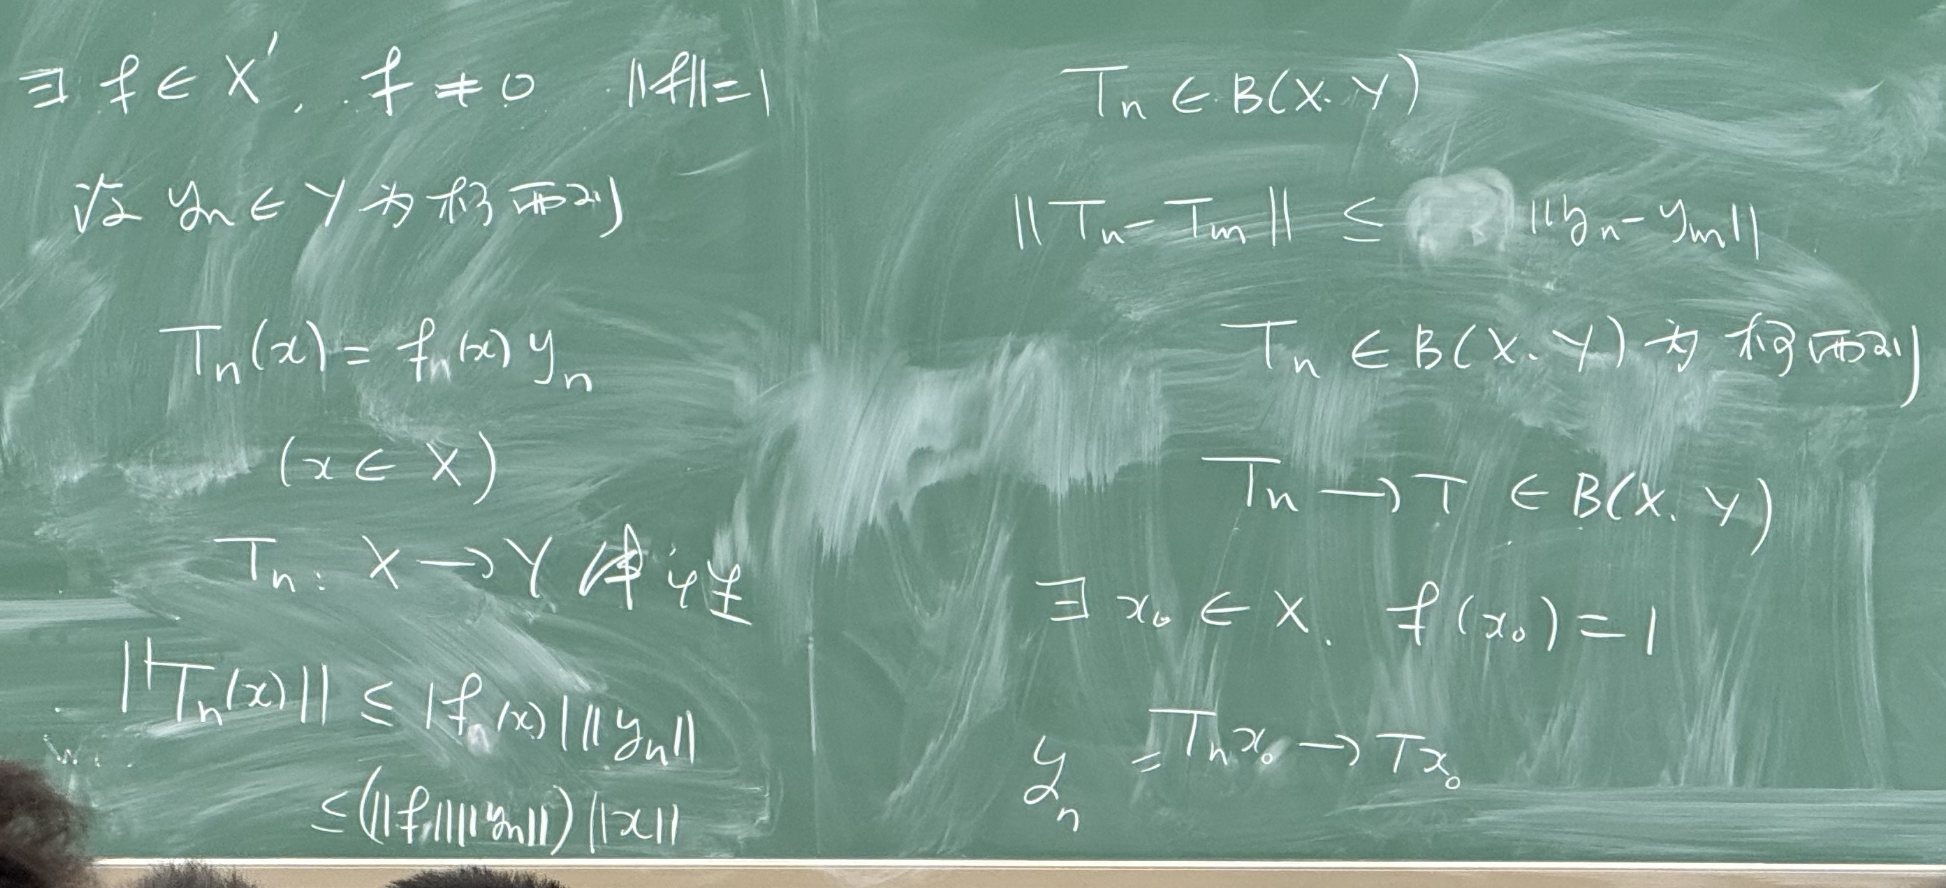 ∃ f ∈ X′, f ≠ 0 ‖f‖=1
设 yₙ ∈ Y 为柯西列
Tₙ(x) = fₙ(x) yₙ
(x ∈ X)
Tₙ: X → Y 线性
‖Tₙ(x)‖ ≤ |fₙ(x)| ‖yₙ‖
≤ (‖f‖‖yₙ‖) ‖x‖
Tₙ ∈ B(X, Y)
‖Tₙ − Tₘ‖ ≤ ‖yₙ − yₘ‖
Tₙ ∈ B(X, Y) 为柯西列
Tₙ → T ∈ B(X, Y)
∃ x₀ ∈ X, f(x₀) = 1
yₙ = Tₙx₀ → Tx₀